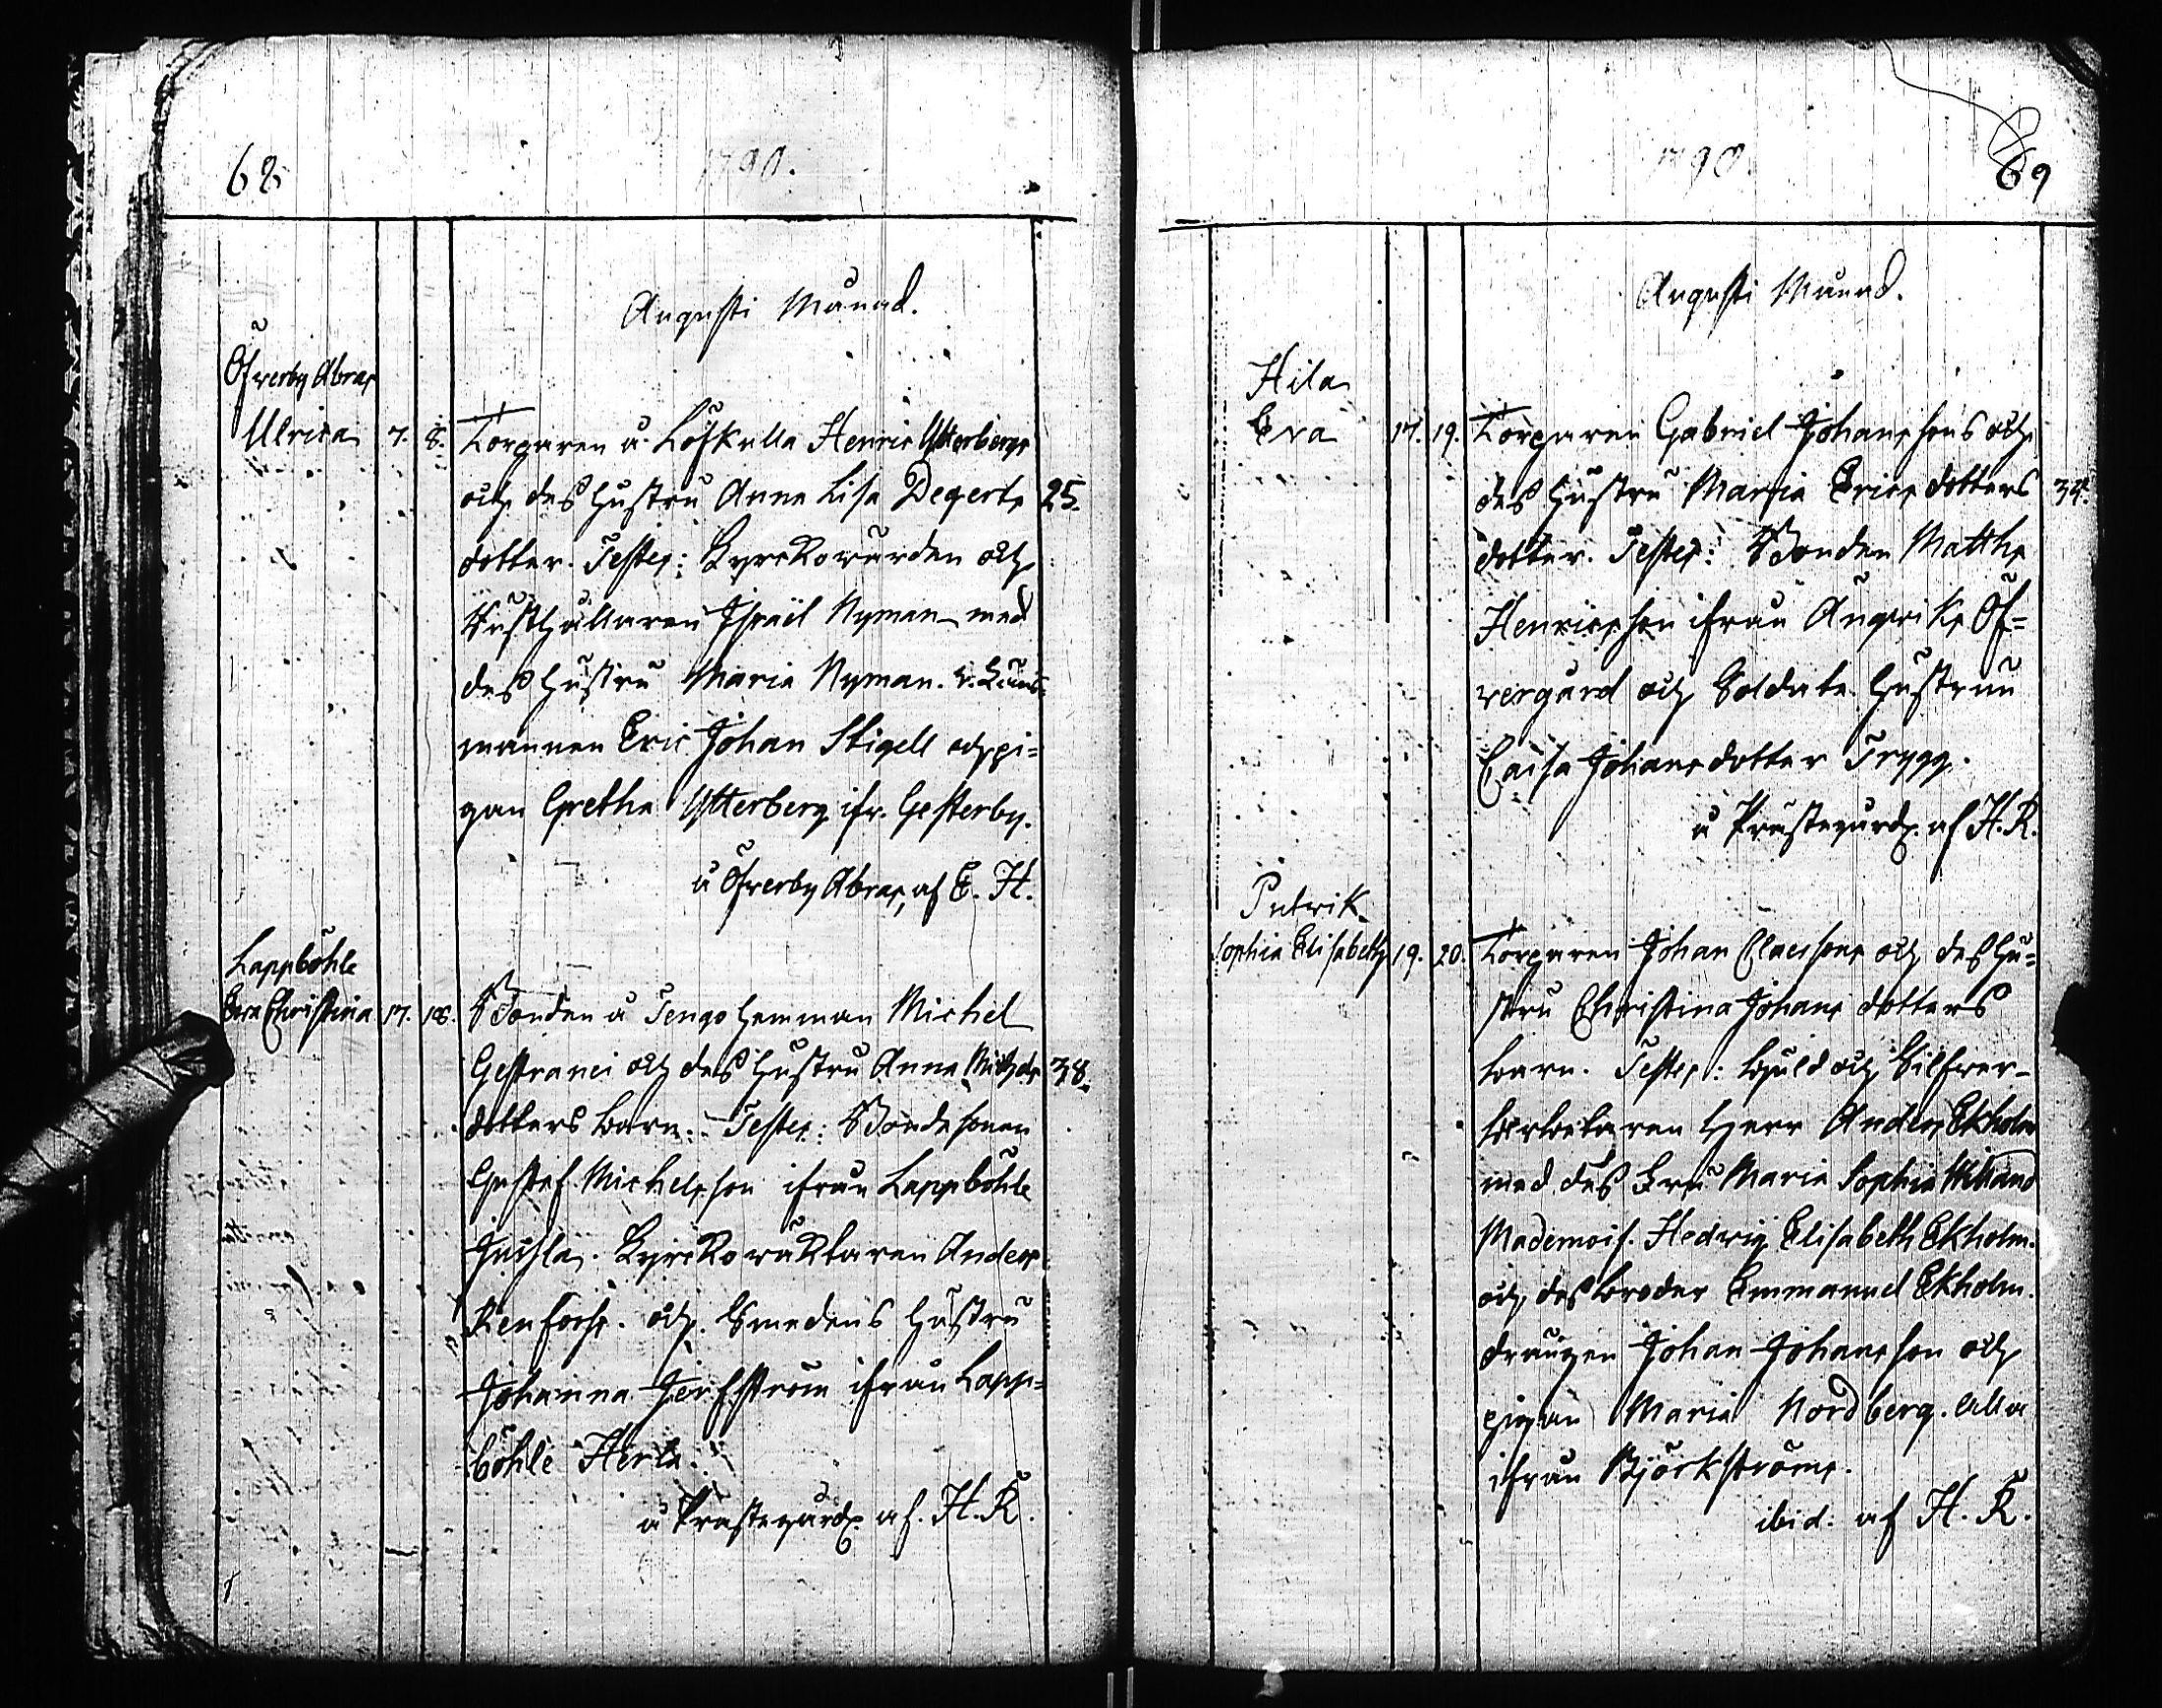 68
1790.
Augusti Månad.
Öfverby Abrae
Ulrica 7. 8. Torparen å Löfkulla Henric Ytterbergs
och des hustru Anna Lisa Degerts 25.
dotter. Testes: Kyrckowärden och
Rusthållaren Israël Nyman med
des hustru Maria Nyman. v. Läns-
mannen Eric Johan Stigell och pi-
gan Gretha Ytterberg ifr. Gesterby.
å Öfverby Abrae, af E. H.
Lappböhle
Eva Christina 17. 18. Bonden å Jengo hemman Michel
Gestranei och des hustru Anna Michels 38.
dotters barn. Testes: Bondesonen
Gustaf Michelsson ifrån Lappböhle
Kyrckowäktaren Anders
Renfors. och Smedens hustru
Johanna Jerfström ifrån Lapp-
böhle Herla.
å Prästegård af. H. R.
69
1790.
Augusti Månad.
Hila
Eva 17. 19. Torparen Gabriel Johanssons och
des hustru Maria Erics dotters 34.
dotter. Testes: Bonden Matths
Henricsson ifrån Ångviks Öf-
vergård och Soldate hustrun
Caisa Johans dotter Trygg.
å Prästegård af H. R.
Putvik
Sophia Elisabeth 19. 20. Torparen Johan Claessons och des hu-
stru Christina Johans dotters
barn. Testes: Guld och Silfver-
arbetaren Herr Anders Ekholm
med des Fru Maria Sophia Willand
Mademois. Hedvig Elisabeth Ekholm.
och des broder Emmanuel Ekholm.
drängen Johan Johansson och
pigan Maria Nordberg. alla
ifrån Björkströms.
ibid: af H. R.